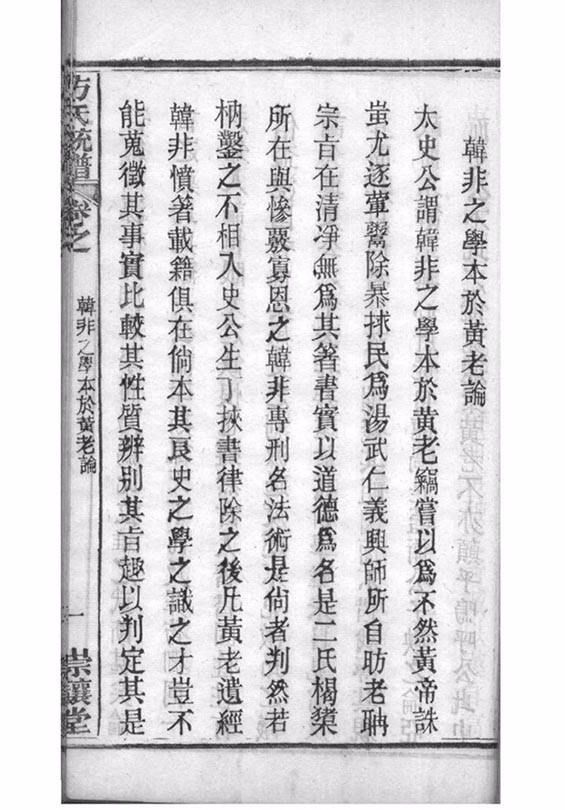 韓非之學本於黃老論
太史公謂韓非之學本於黃老竊嘗以爲不然黃帝誅
蚩尤逐葷鬻除暴捄民爲湯武仁義興師所自昉老聃
宗㫖在清凈無爲其著書實以道德爲名是二氏楬櫫
所在與慘覈寡恩之韓非專刑名法術是尙者判然若
枘鑿之不相入史公生丁挾書律除之後凡黃老遺經
韓非憤著載籍俱在倘本其良史之學之識之才豈不
能蒐徵其事實比較其性質辨別其㫖趣以判定其是
方氏統譜 卷之
韓非之學本於黃老論
一
崇讓堂